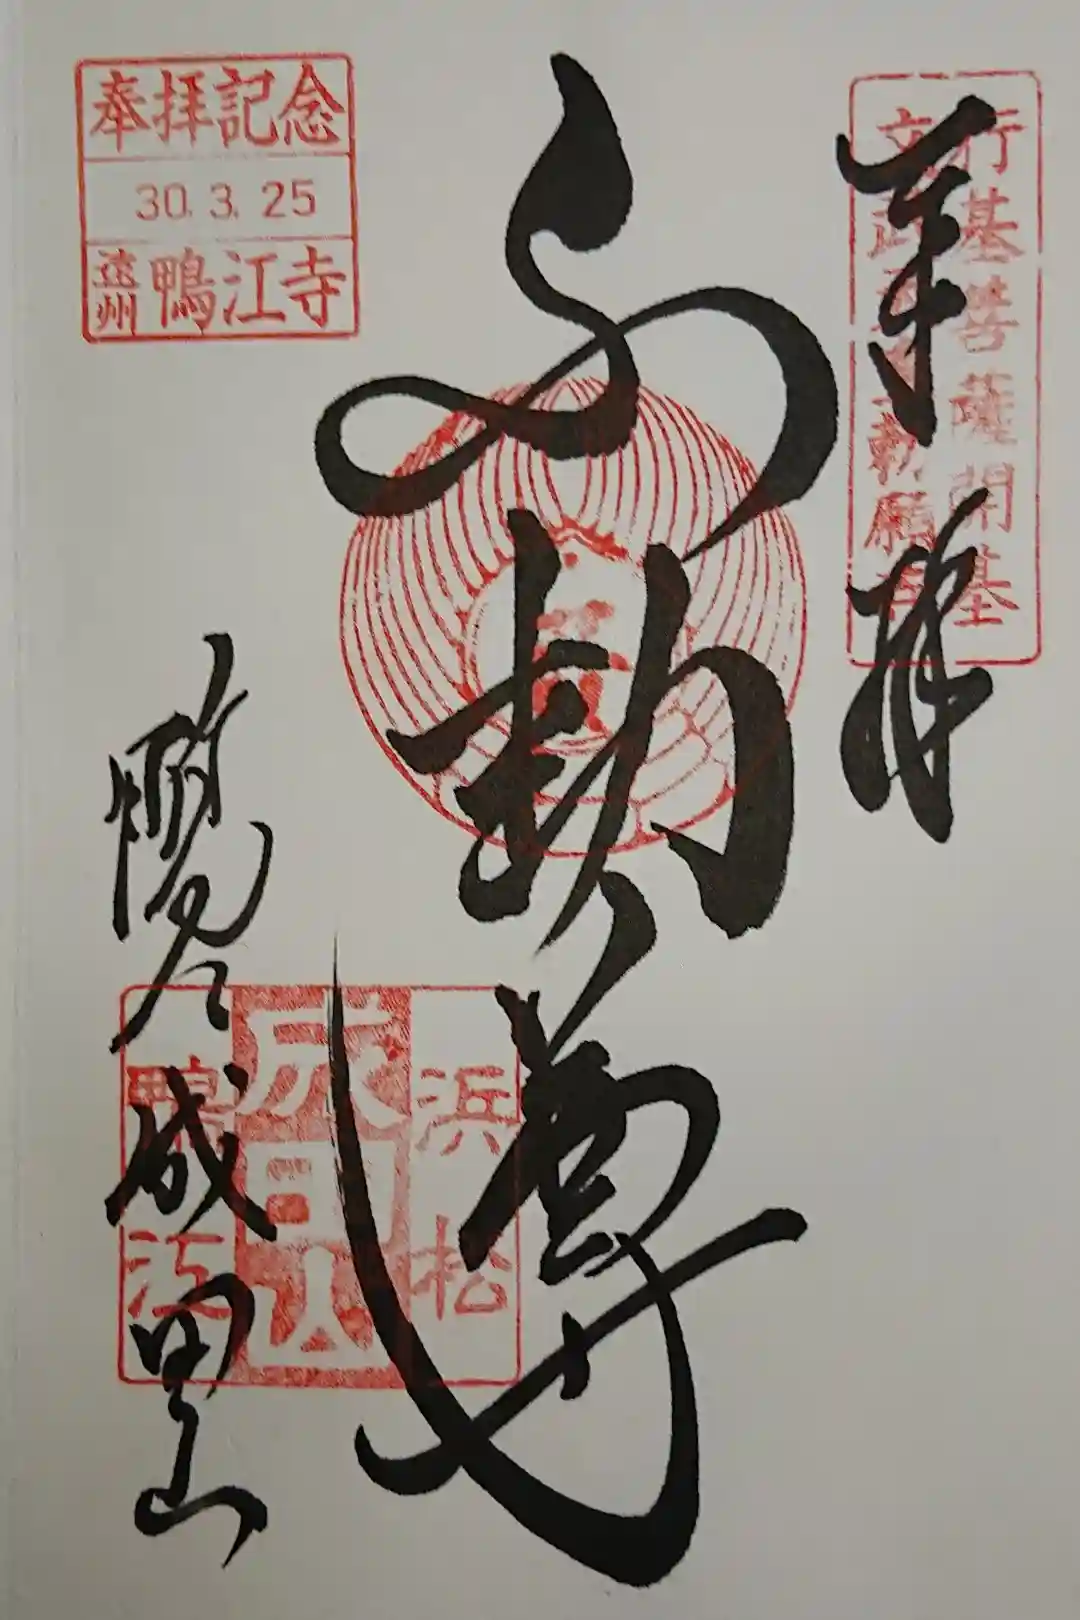 奉拝
行基菩薩開基
文武天皇勅願寺
不動尊
浜松
成田山
鴨江
成田山
奉拝記念
30.3.25
遠州 鴨江寺